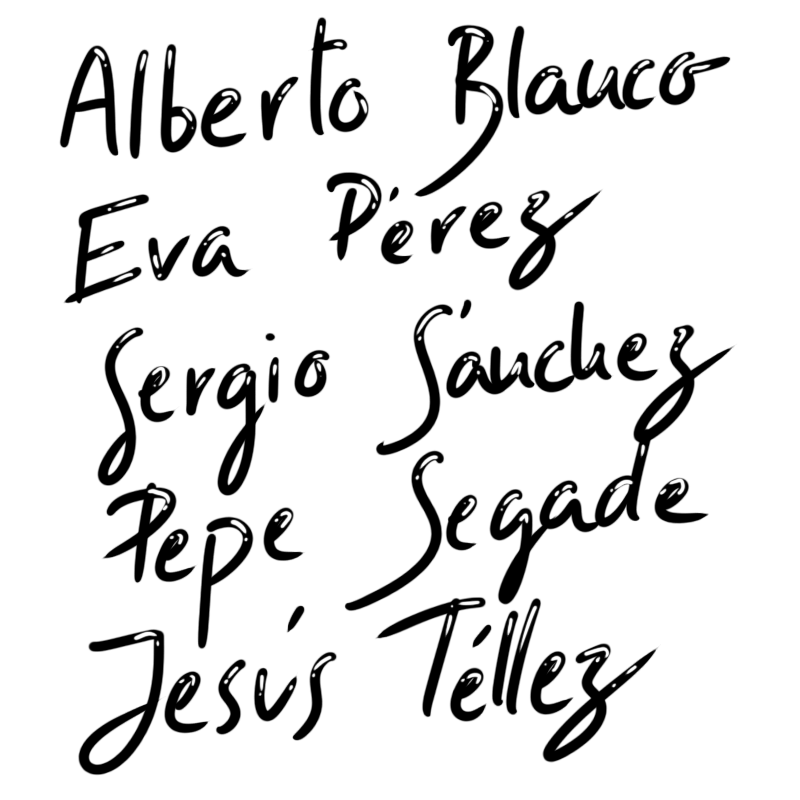 Alberto Blanco
Eva Pérez
Sergio Sánchez
Pepe Segade
Jesús Téllez